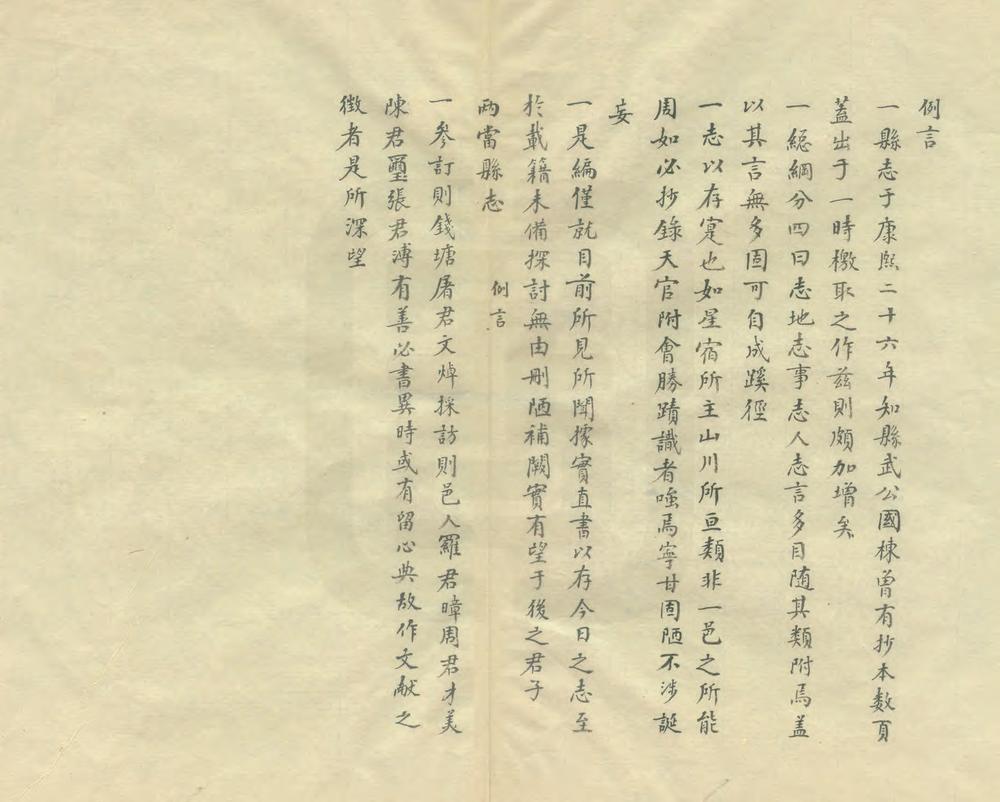 例言
一縣志于康熙二十六年知縣武公國棟曾有抄本數頁
蓋出于一時檄取之作兹則頗加增矣
一總綱分四曰志地志事志人志言多目随其類附焉盖
以其言無多固可自成蹊徑
一志以存寔也如星宿所主山川所亘類非一邑之所能
周如必抄錄天官附會勝蹟識者嗤焉寧甘固陋不涉誕
妄
一是編僅就目前所見所聞據實直書以存今日之志至
於載籍未備探討無由刪陋補闕實有望于後之君子
兩當縣志
例言
一參訂則錢塘屠君文焯採訪則邑人羅君暲周君才美
陳君璽張君溥有善必書異時或有留心典故作文献之
徵者是所深望